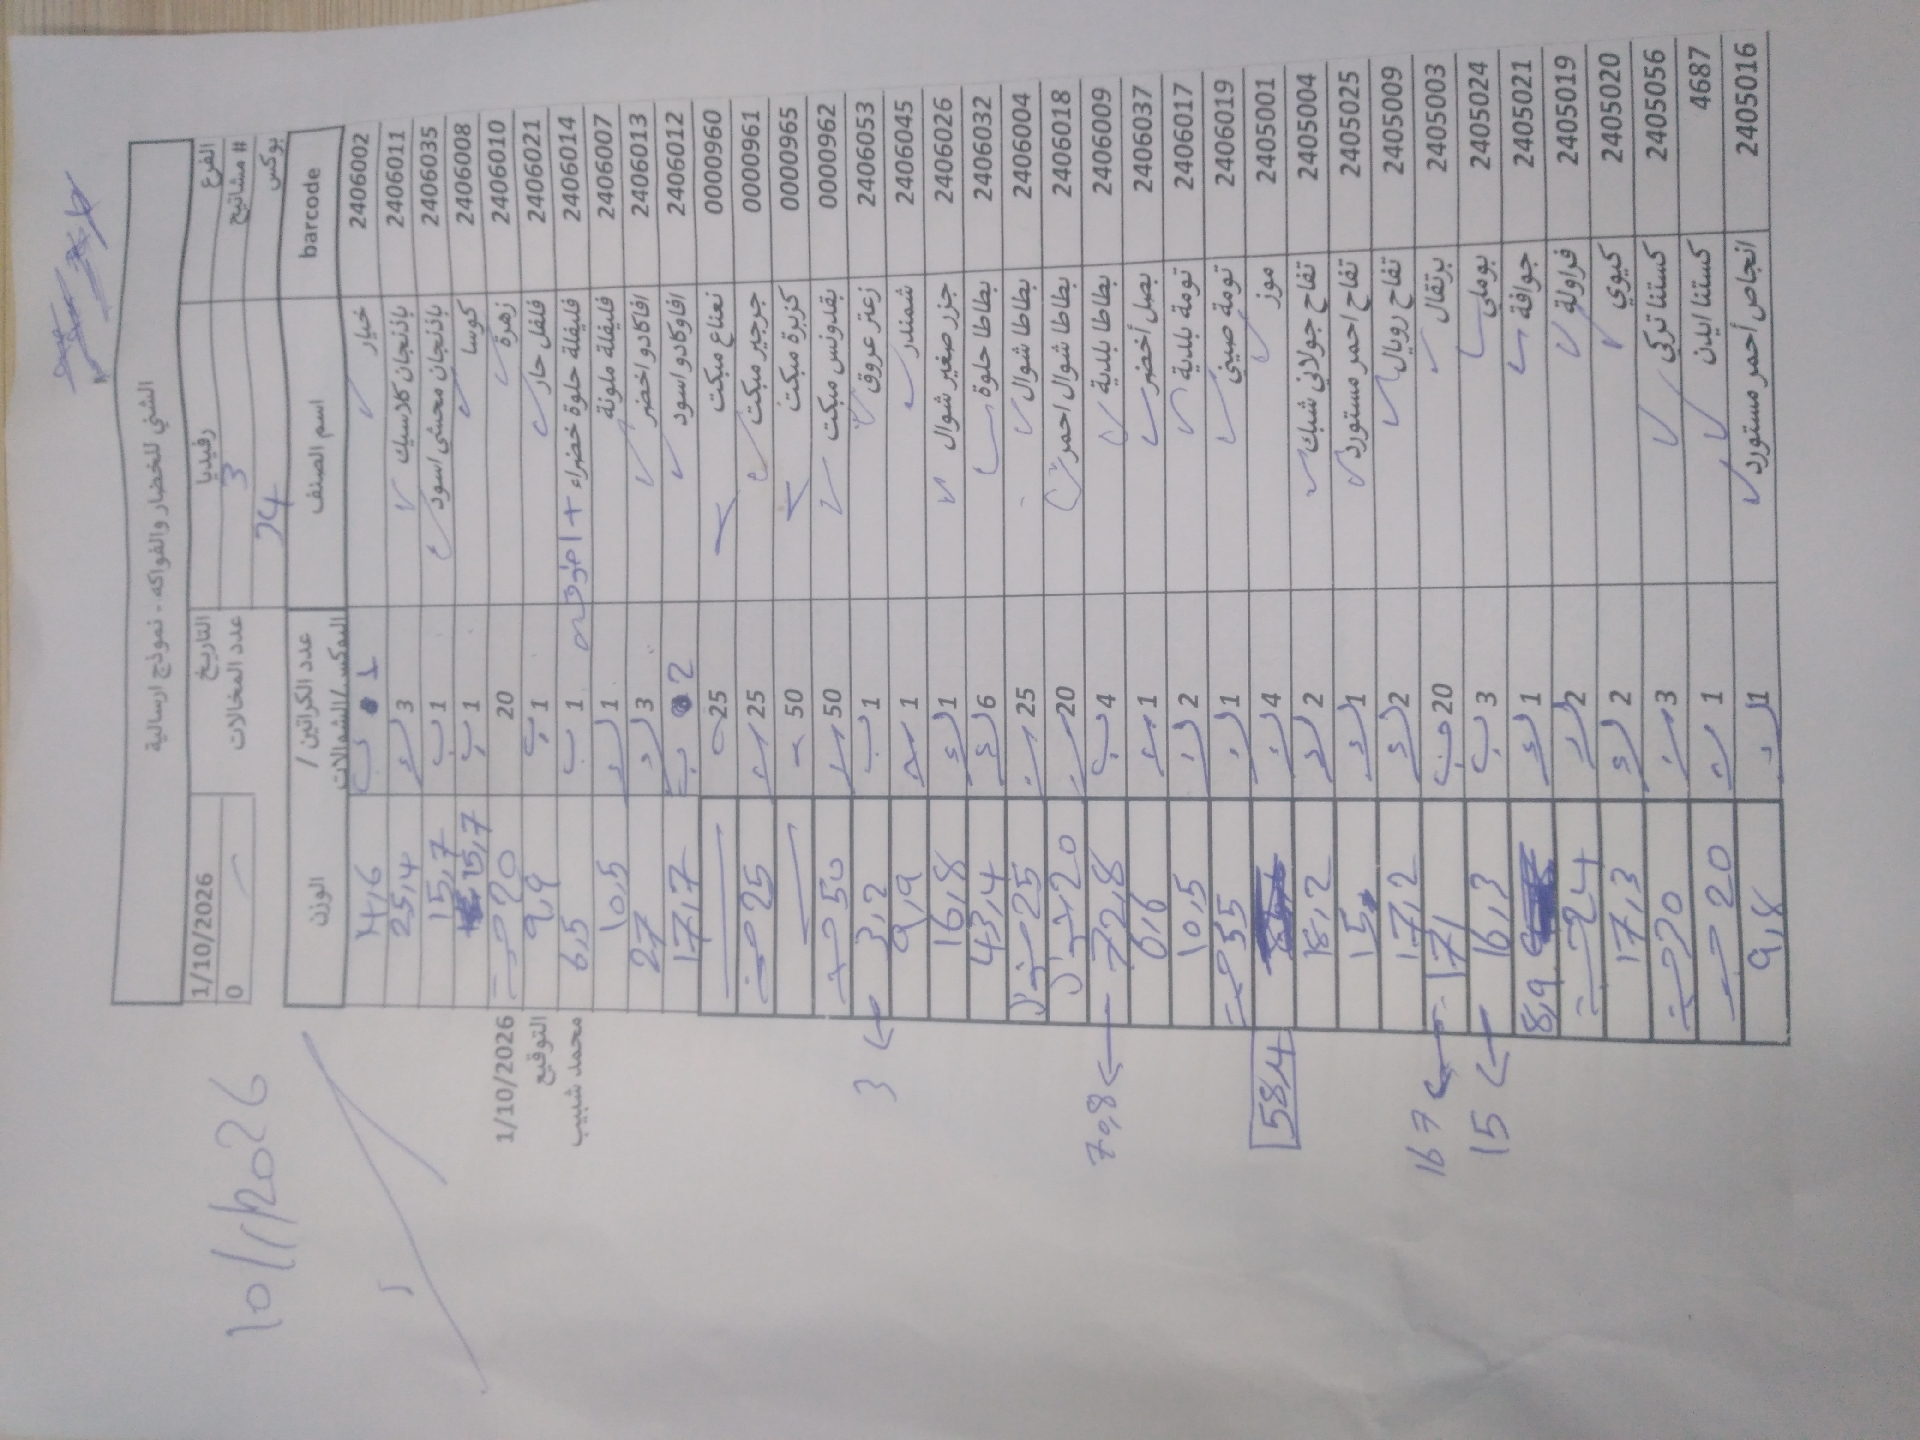 الشني للخضار والفواكه - نموذج ارسالية
الفرع رفيديا التاريخ 1/10/2026
# مشاتيح 3 عدد المخالات 0
بوكس 24
barcode اسم الصنف عدد الكراتين / البوكس/الشوالات الوزن
2406002 خيار 1 14,6
2406011 باذنجان كلاسيك 3 25,4
2406035 باذنجان محشي اسود 1 15,7
2406008 كوسا 1 15,7
2406010 زهرة 20 20
2406021 فلفل حار 1 9,9
2406014 فليفلة حلوة خضراء 1 6,5
2406007 فليفلة ملونة 1 10,5
2406013 افاكادو اخضر 3 27
2406012 افاوكادو اسود 2 17,7
0000960 نعناع مبكت 25
0000961 جرجير مبكت 25 25
0000965 كزبرة مبكت 50
0000962 بقدونس مبكت 50 50
2406053 زعتر عروق 1 3,2 3
2406045 شمندر 1 9,9
2406026 جزر صغير شوال 1 16,8
2406032 بطاطا حلوة 6 43,4
2406004 بطاطا شوال 25 25
2406018 بطاطا شوال احمر 20 20
2406009 بطاطا بلدية 4 72,8 70,8
2406037 بصل أخضر 1 6,6
2406017 تومة بلدية 2 10,5
2406019 تومة صيني 1 55
2405001 موز 4 58,4
2405004 تفاح جولاني شبك 2 18,2
2405025 تفاح احمر مستورد 1 15
2405009 تفاح رويال 2 17,2
2405003 برتقال 20 171 167
2405024 بوملي 3 16,3 15
2405021 جوافة 1 8,9
2405019 فراولة 2 24
2405020 كيوي 2 17,3
2405056 كستنا تركي 3 20
4687 كستنا ايلين 1 20
2405016 انجاص أحمر مستورد 1 9,8
1/10/2026
التوقيع
محمد شبيب
10/1/2026